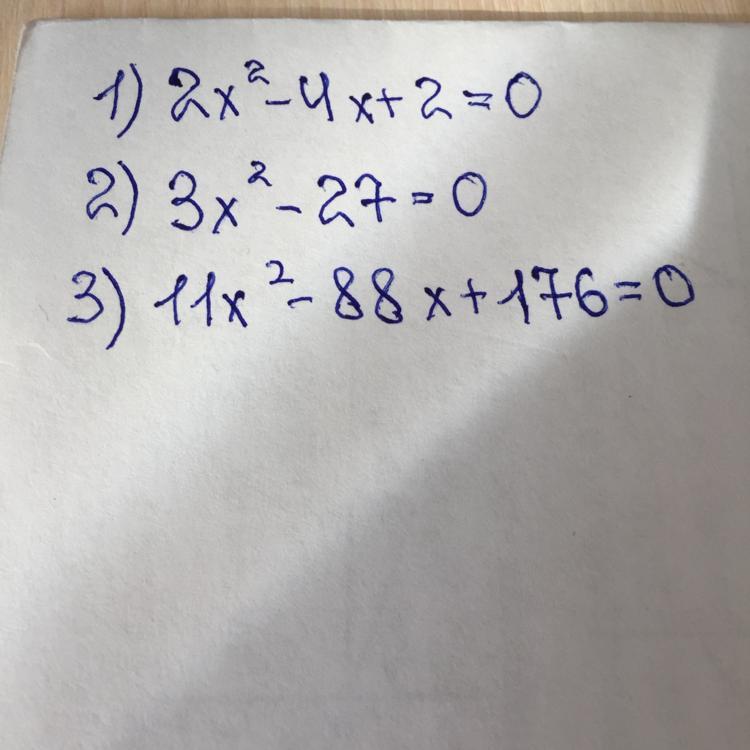 1) 2x² - 4x + 2 = 0
2) 3x² - 27 = 0
3) 11x² - 88x + 176 = 0